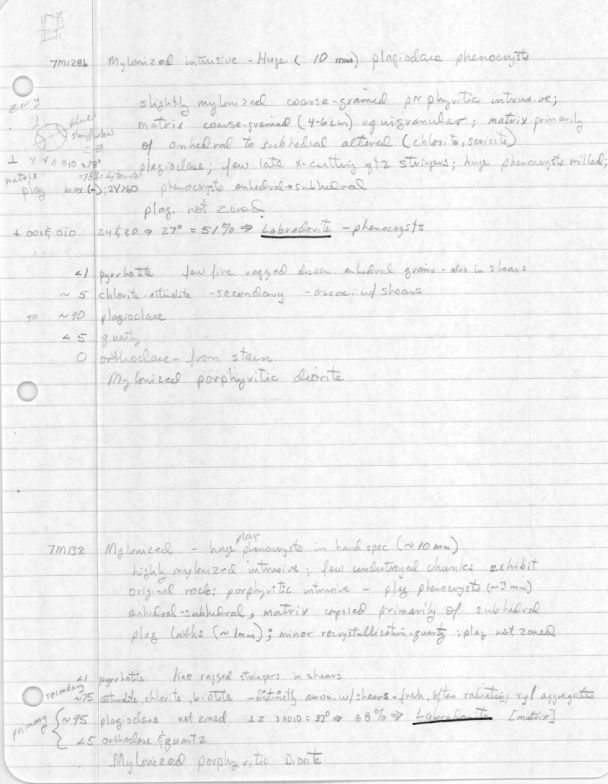 7M128b Mylonized intrusive - Huge ( 10 mm) plagioclase phenocrysts
slightly mylonized coarse-grained porphyritic intrusive;
matrix coarse-grained (4-6 ) equigranular; matrix primarily
of anhedral to subhedral altered (chlorite, sericite)
plagioclase; few late x-cutting qtz stringers; huge phenocrysts milled;
phenocrysts anhedral→subhedral
plag. not zoned
⊥ 001 & 010 24 & 30 ⇒ 27° = 51% ⇒ Labradorite - phenocrysts
<1 pyrrhotite few fine ragged dissem. anhedral grains - also in shears
~ 5 chlorite-actinolite - secondary - assoc. w/ shears
90 ~90 plagioclase
<5 quartz
0 orthoclase - from stain
Mylonized porphyritic diorite
7M132 Mylonized - huge plag phenocrysts in hand spec (~10 mm)
highly mylonized intrusive; few undestroyed chunks exhibit
original rock; porphyritic intrusive - plag phenocrysts (~3 mm)
anhedral-subhedral, matrix composed primarily of subhedral
plag laths (~1mm); minor recrystallization-quartz; plag not zoned
<1 pyrrhotite fine ragged stringers in shears
secondary ~75 actinolite, chlorite, biotite - distinctly assoc. w/ shears - fresh, often radiating xyl aggregates
primary ~95 plagioclase not zoned ⊥ 010 = 37° ⇒ 68% ⇒ Labradorite [matrix]
<5 orthoclase & quartz
Mylonized porphyritic Diorite